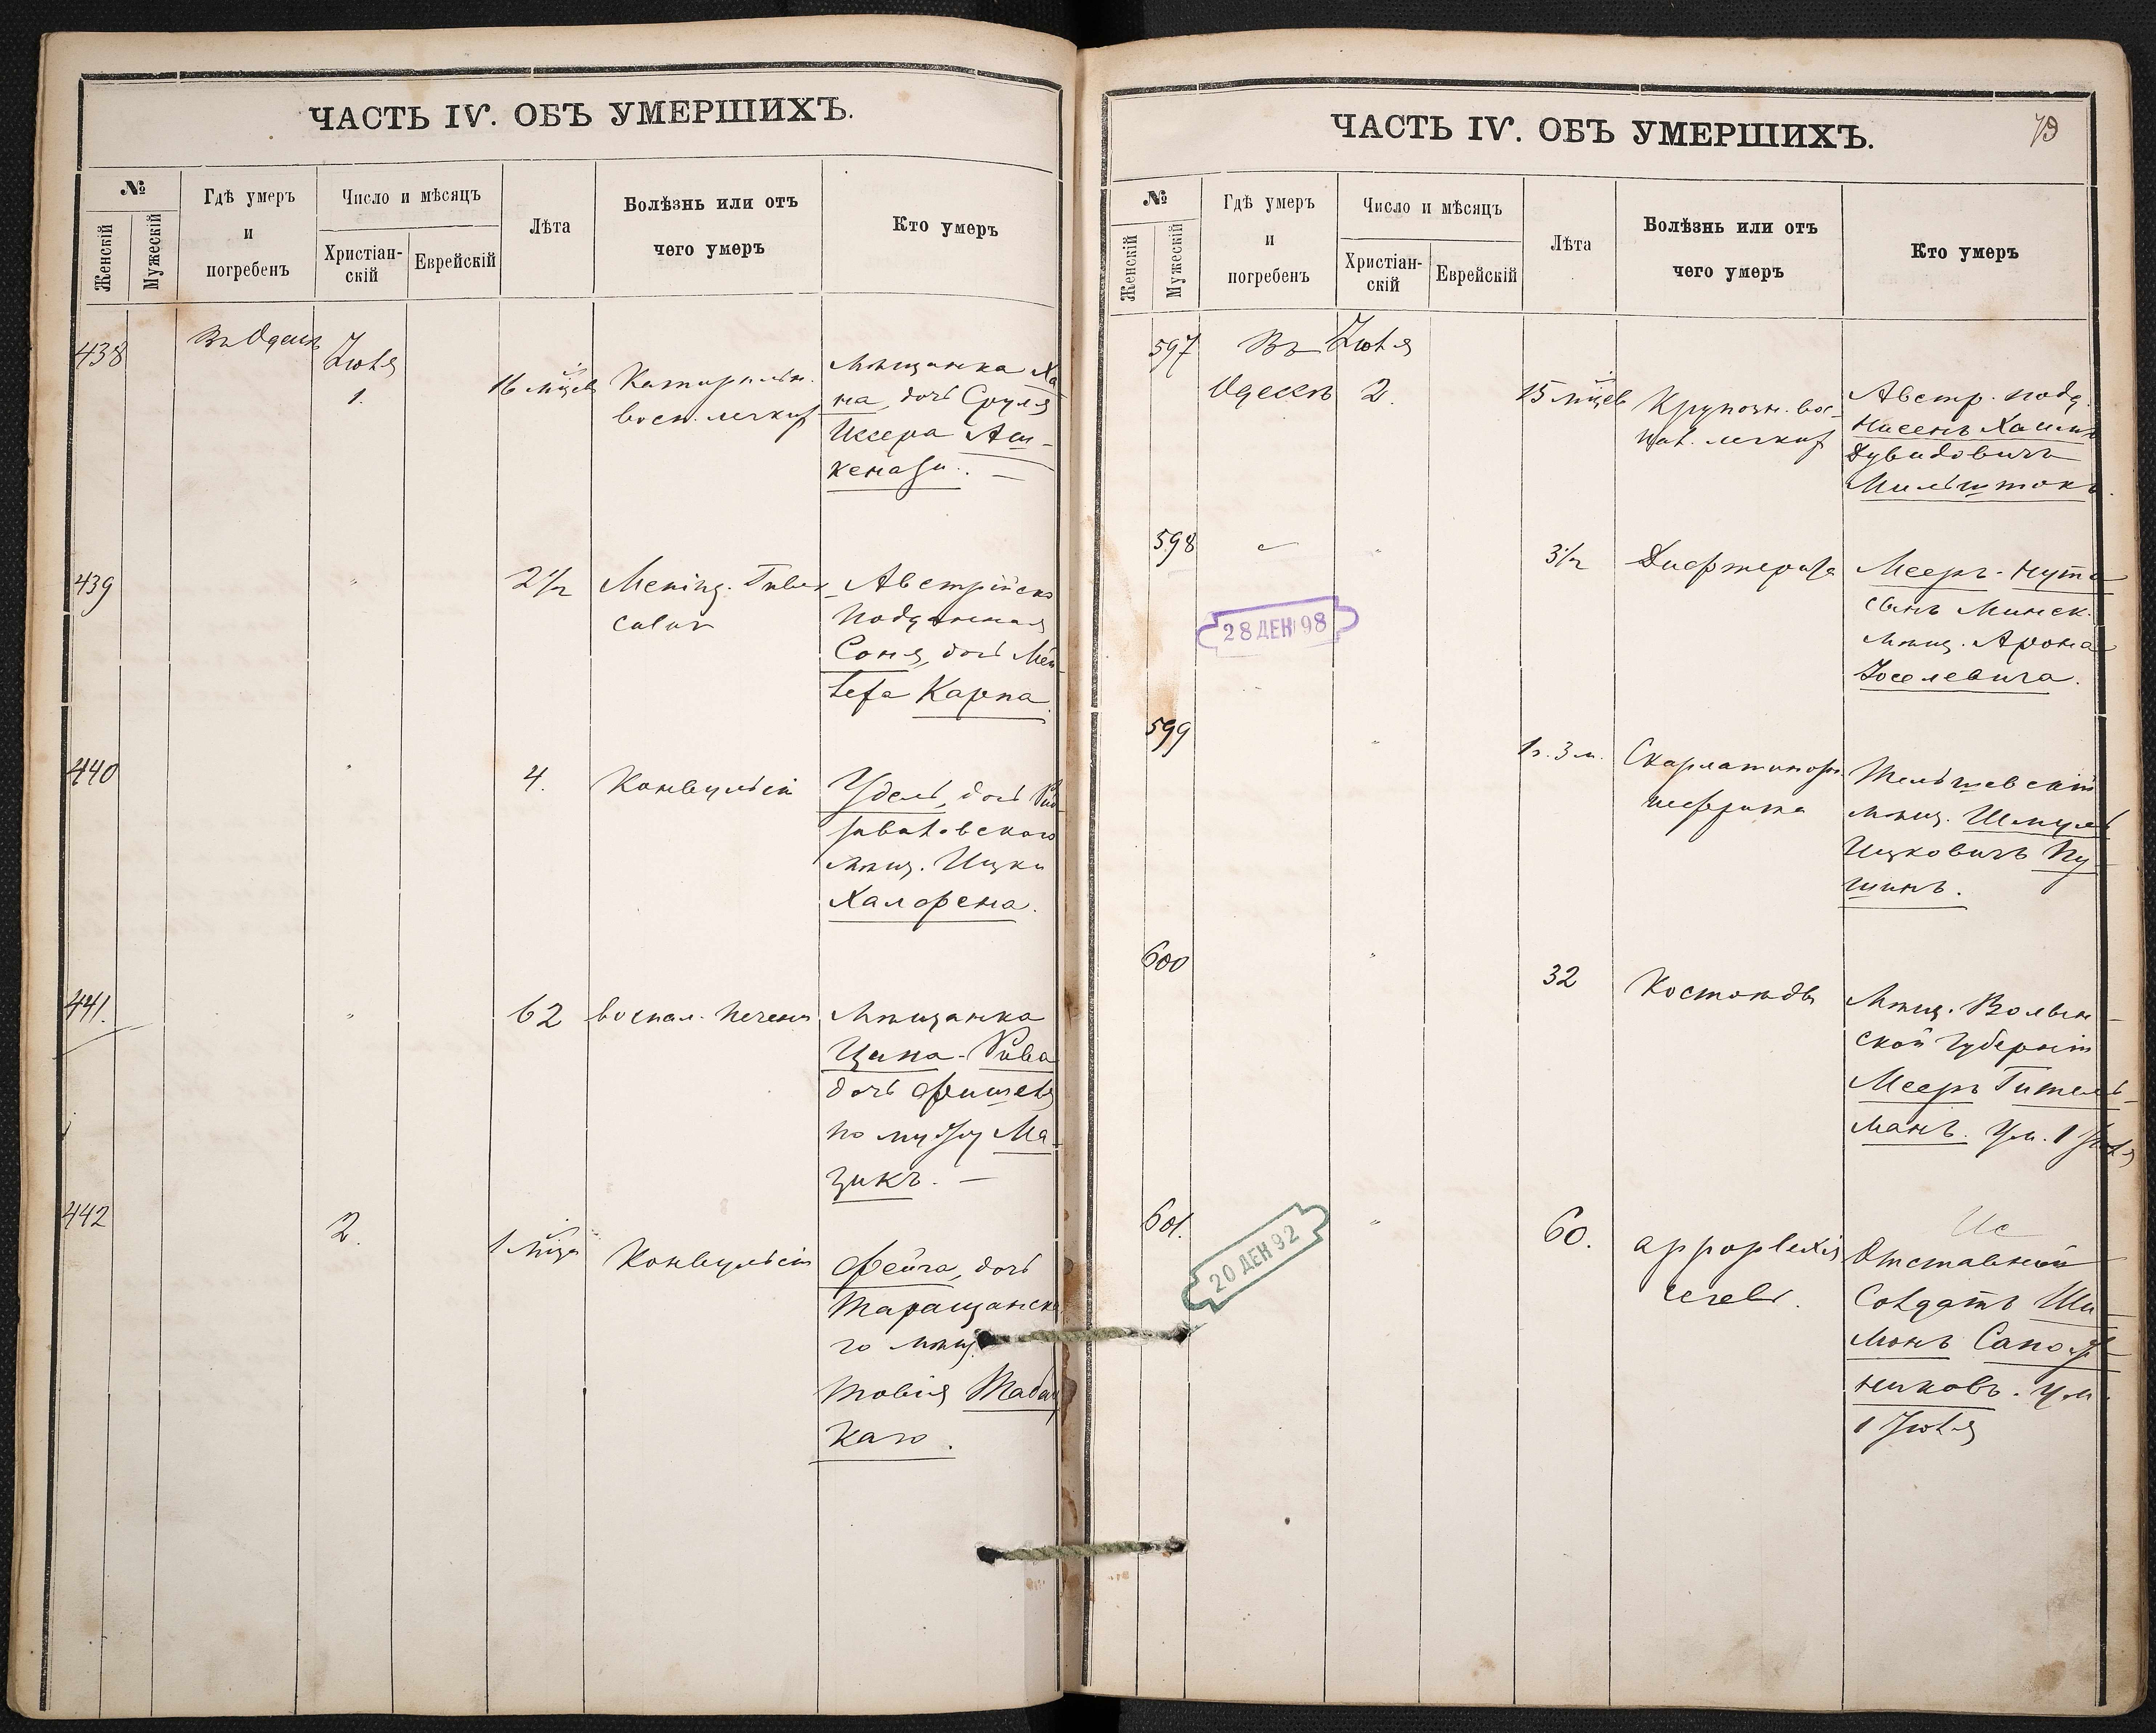 ЧАСТЬ IV. ОБЪ УМЕРШИХЪ.
№
Женскій
Мужескій
Гдѣ умеръ
и
погребенъ
Число и мѣсяцъ
Христіан-
скій
Еврейскій
Лѣта
Болѣзнь или отъ
чего умеръ
Кто умеръ
438
Въ Одессѣ
Іюля
1.
16 м-цевъ
Катарральн.
восп. легких
Мѣщанка Ха
на, дочь Сруля
Иссера Аш-
кенази. —
439
"
2 1/2
Mening. Tuber
cular
Австрійско
подданная
Соня, дочь Мен
деля Карпа.
440
"
4.
Конвульсіи
Удель, дочь
мѣщ. Ицки
Халфена.
441.
"
62
воспал. печени
Мѣщанка
Ципа-Рива
дочь Фишеля
по мужу Ма-
зикъ. —
442
2.
1 м-ца
Конвульсіи
Фейга, дочь
Таращанска
го мѣщ.
Товія Табач
каго.
ЧАСТЬ IV. ОБЪ УМЕРШИХЪ.
79
№
Женскій
Мужескій
Гдѣ умеръ
и
погребенъ
Число и мѣсяцъ
Христіан-
скій
Еврейскій
Лѣта
Болѣзнь или отъ
чего умеръ
Кто умеръ
597
Въ
Одессѣ
Іюля
2.
15 м-цевъ
Крупозн. вос-
пал. легких
Австр. подд.
Нисенъ Хаимъ
Дувидовичъ
Мильштокъ.
598
"
3 1/2
Дифтерита
Мееръ-Нута
сынъ Минск.
мѣщ. Арона
Іоселевича.
28 ДЕК 98
599
"
1 г. 3 м.
Скарлатинозн.
нефрита
Тельшевскій
мѣщ. Шмуль
Ицковичъ Пу-
шинъ.
600
"
32
Костоѣды
Мѣщ. Волын-
ской Губерніи
Мееръ Гитель-
манъ. Ум. 1 Іюля
601.
20 ДЕК 92
"
60.
appoplexia
cerebr.
Ис
Отставной
Солдатъ Ши-
монъ Сапож-
никовъ. Ум.
1 Іюля